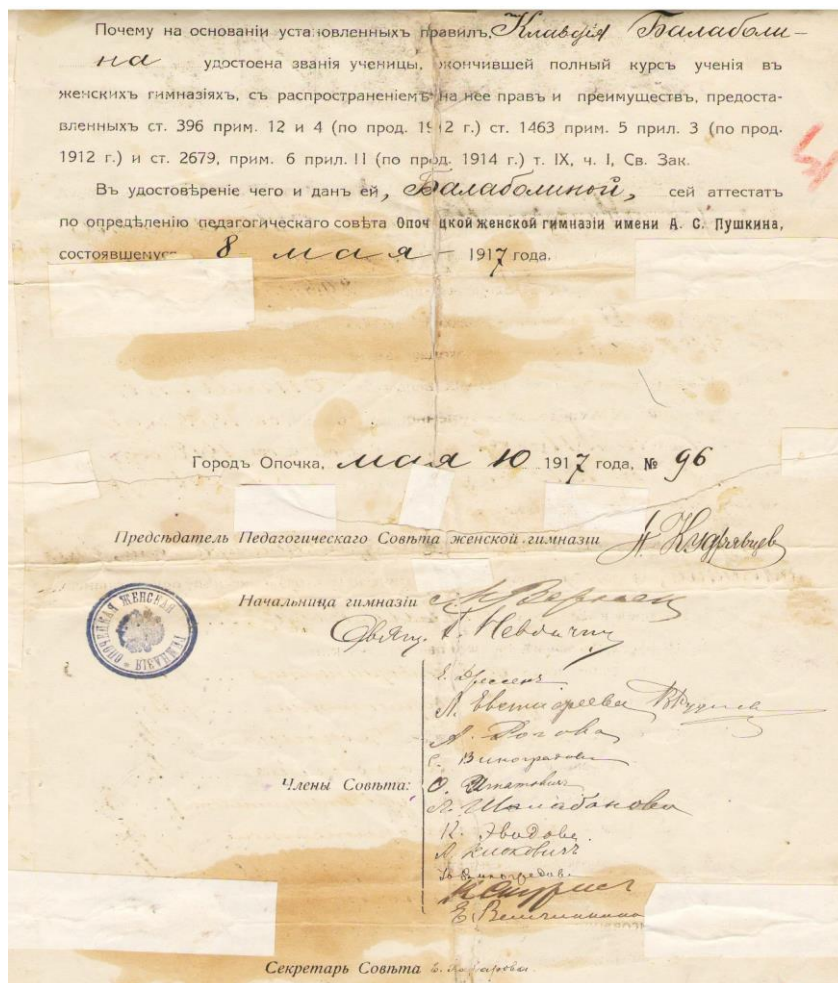 Почему на основаніи установленныхъ правилъ, Клавдія Балаболи-
на удостоена званія ученицы, окончившей полный курсъ ученія въ
женскихъ гимназіяхъ, съ распространеніемъ на нее правъ и преимуществъ, предоста-
вленныхъ ст. 396 прим. 12 и 4 (по прод. 1912 г.) ст. 1463 прим. 5 прил. 3 (по прод.
1912 г.) и ст. 2679, прим. 6 прил. II (по прод. 1914 г.) т. IX, ч. I, Св. Зак.
Въ удостовѣреніе чего и данъ ей, Балаболиной, сей аттестатъ
по опредѣленію педагогическаго совѣта Опочецкой женской гимназіи имени А. С. Пушкина,
состоявшемуся 8 мая 1917 года.
Городъ Опочка, мая 10 1917 года, № 96
Предсѣдатель Педагогическаго Совѣта женской гимназіи Кудрявцев
Начальница гимназіи
ОПОЧЕЦКАЯ ЖЕНСКАЯ ГИМНАЗІЯ
Свящ.
Е. Дрессенъ
Л. Евстигнеева
А. Рогова
С. Виноградова
Члены Совѣта: О. Игнатовичъ
Шалабанова
К.
А.
Виноградов.
Е.
Секретарь Совѣта